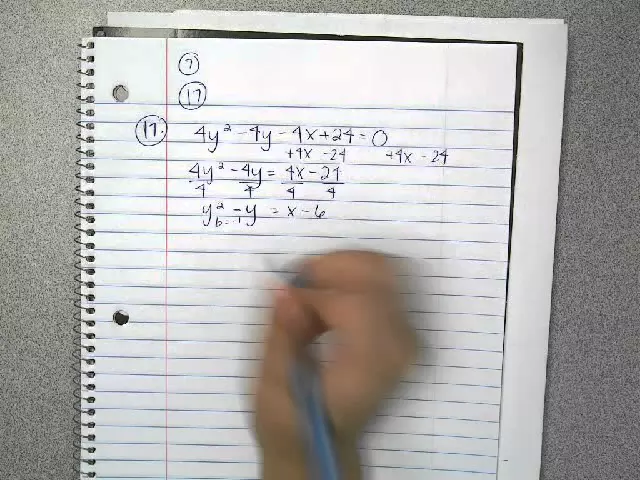 7
17
17. 4y² - 4y - 4x + 24 = 0
+4x - 24 +4x - 24
4y² - 4y = 4x - 24
4 4 4 4
y² - y = x - 6
b = -1